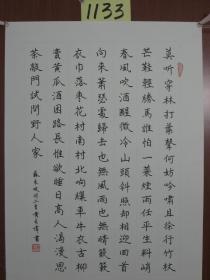 1133
莫聽穿林打葉聲何妨吟嘯且徐行竹杖
芒鞋輕勝馬誰怕一蓑煙雨任平生料峭
春風吹酒醒微冷山頭斜照却相迎回首
向來蕭瑟處歸去也無風雨也無晴簌簌
衣巾落棗花村南村北響繰車牛衣古柳
賣黄瓜酒困路長惟欲睡日高人渴漫思
茶敲門試問野人家
蘇東坡詞二首